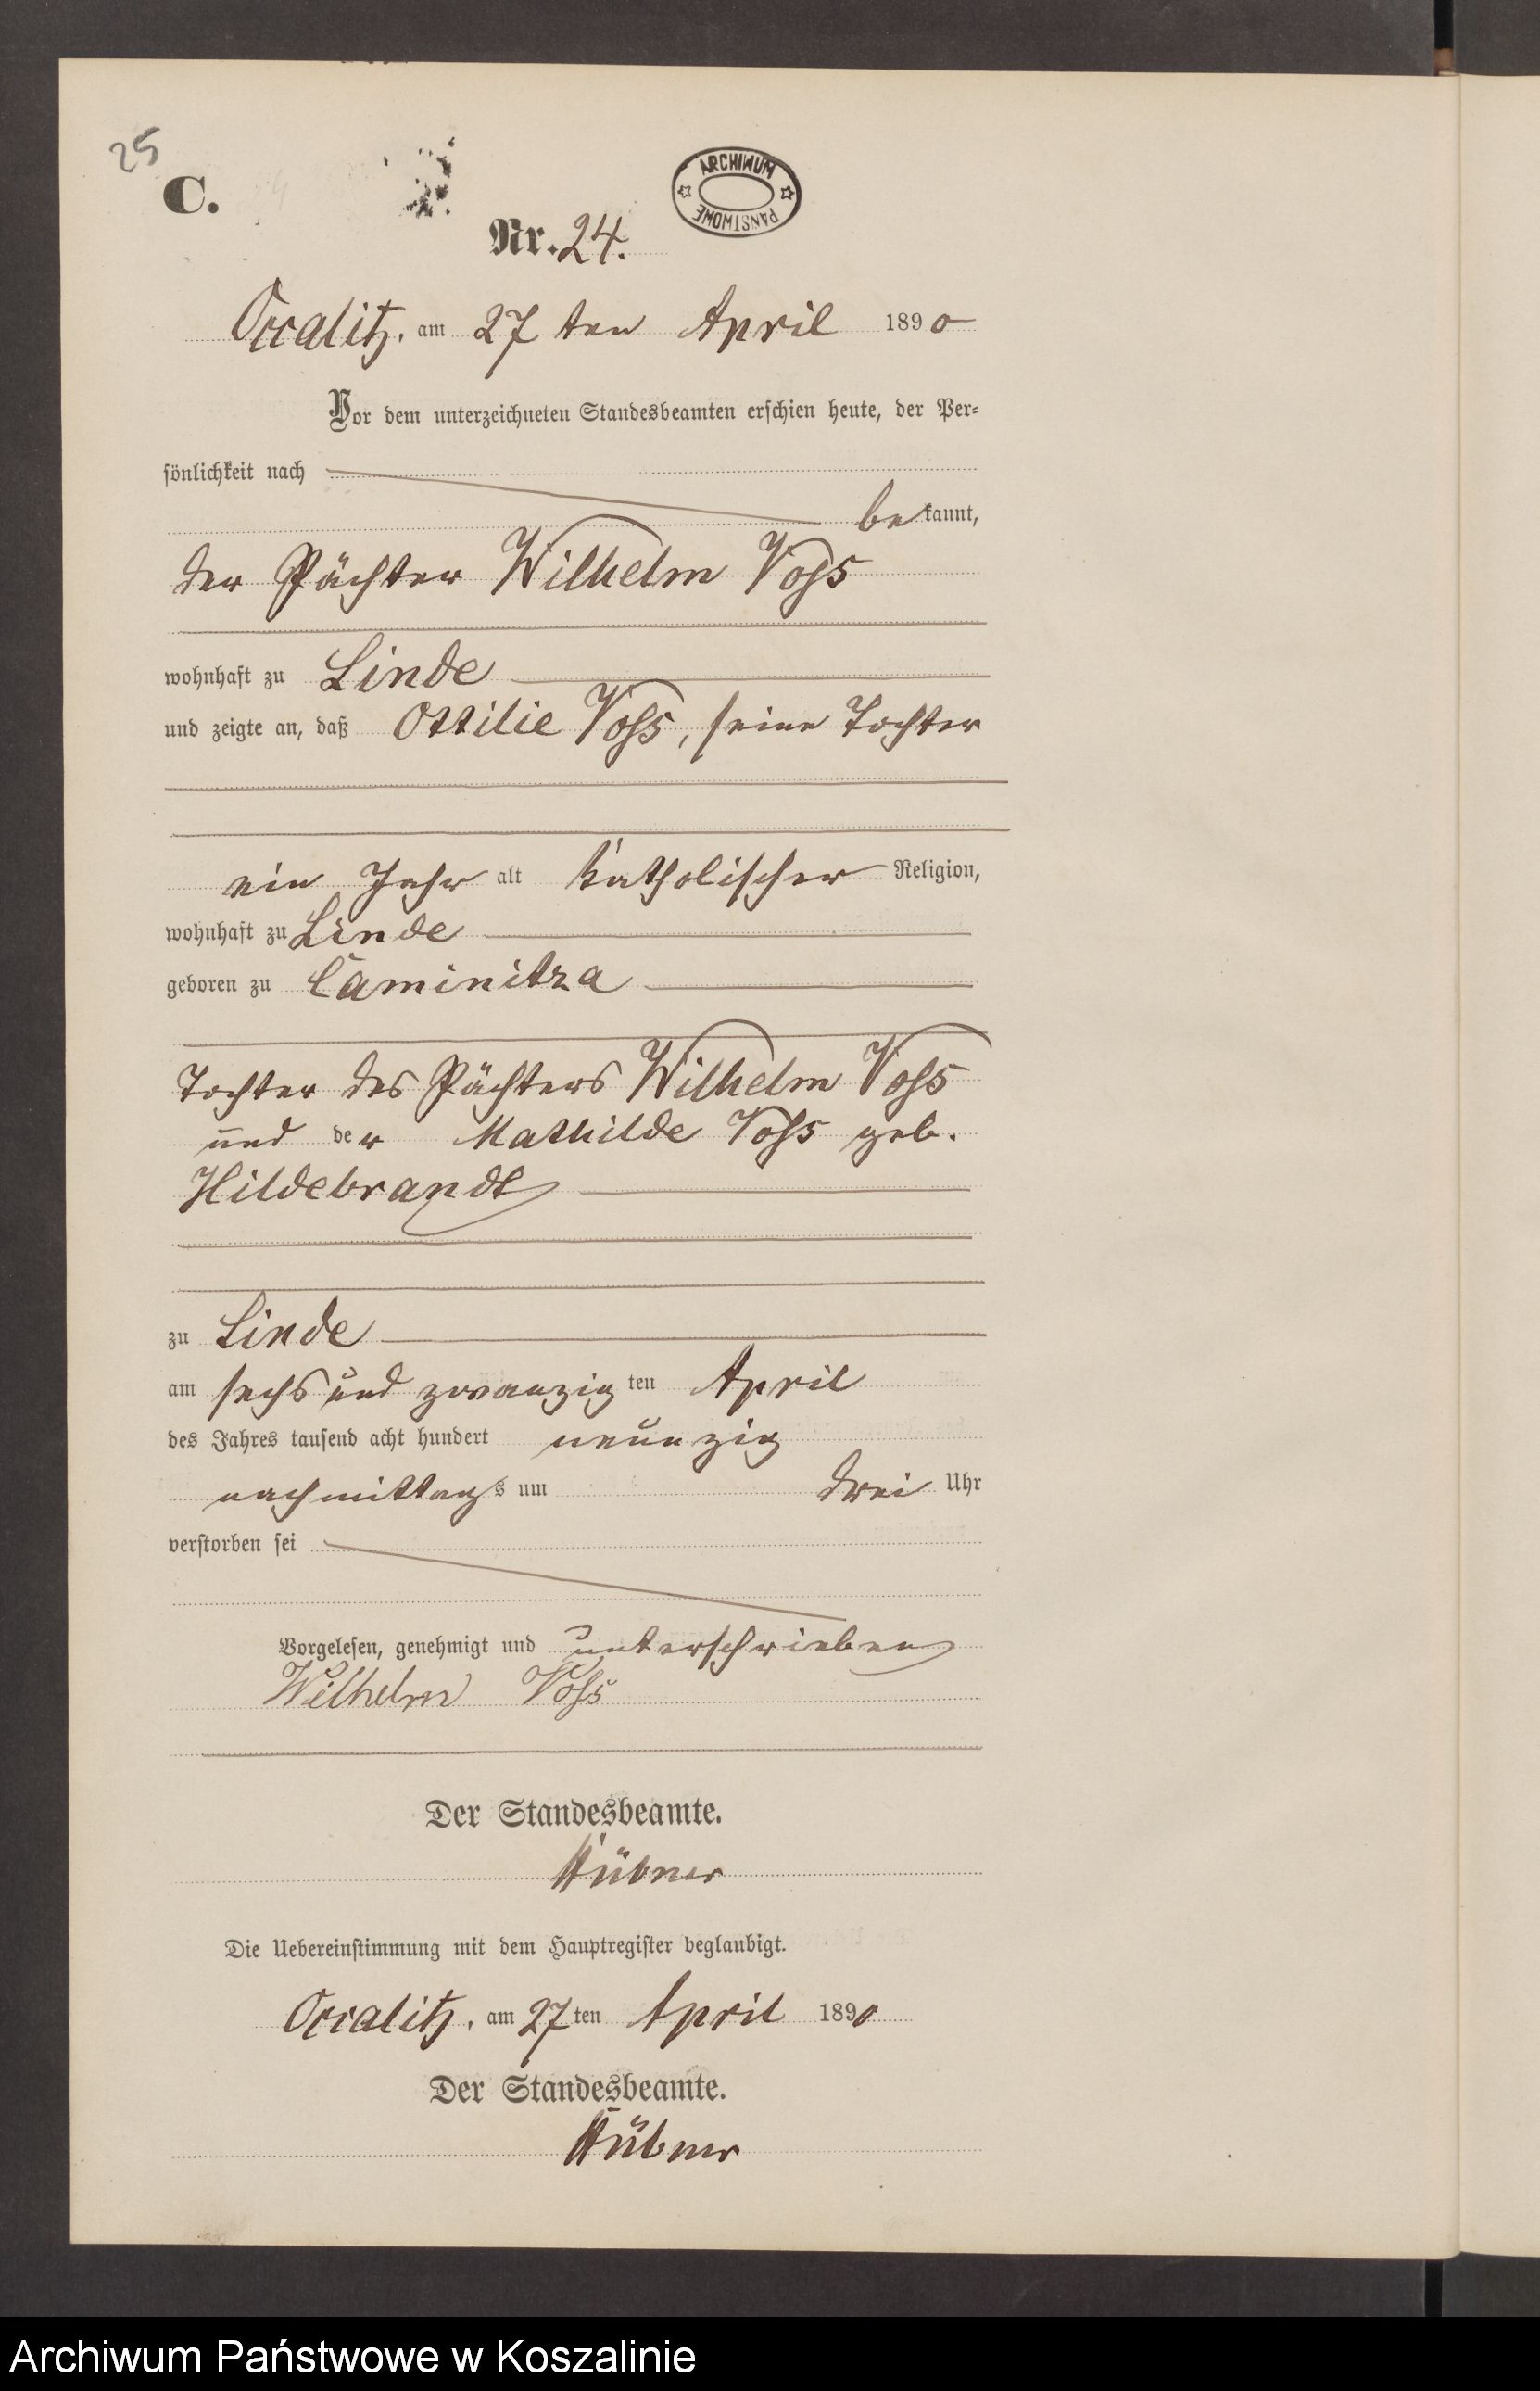 25
C.
ARCHIWUM PAŃSTWOWE
Nr. 24.
Occalitz, am 27 ten April 1890
Vor dem unterzeichneten Standesbeamten erschien heute, der Per-
sönlichkeit nach
bekannt,
der Pächter Wilhelm Voss
wohnhaft zu Linde
und zeigte an, daß Ottilie Voss, seine Tochter
ein Jahr alt katholischer Religion,
wohnhaft zu Linde
geboren zu Caminitza
Tochter des Pächters Wilhelm Voss
und der Mathilde Voss geb.
Hildebrandt
zu Linde
am sechs und zwanzig ten April
des Jahres tausend acht hundert neunzig
nachmittags um drei Uhr
verstorben sei
Vorgelesen, genehmigt und unterschrieben
Wilhelm Voss
Der Standesbeamte.
Hübner
Die Uebereinstimmung mit dem Hauptregister beglaubigt.
Occalitz, am 27 ten April 1890
Der Standesbeamte.
Hübner
Archiwum Państwowe w Koszalinie